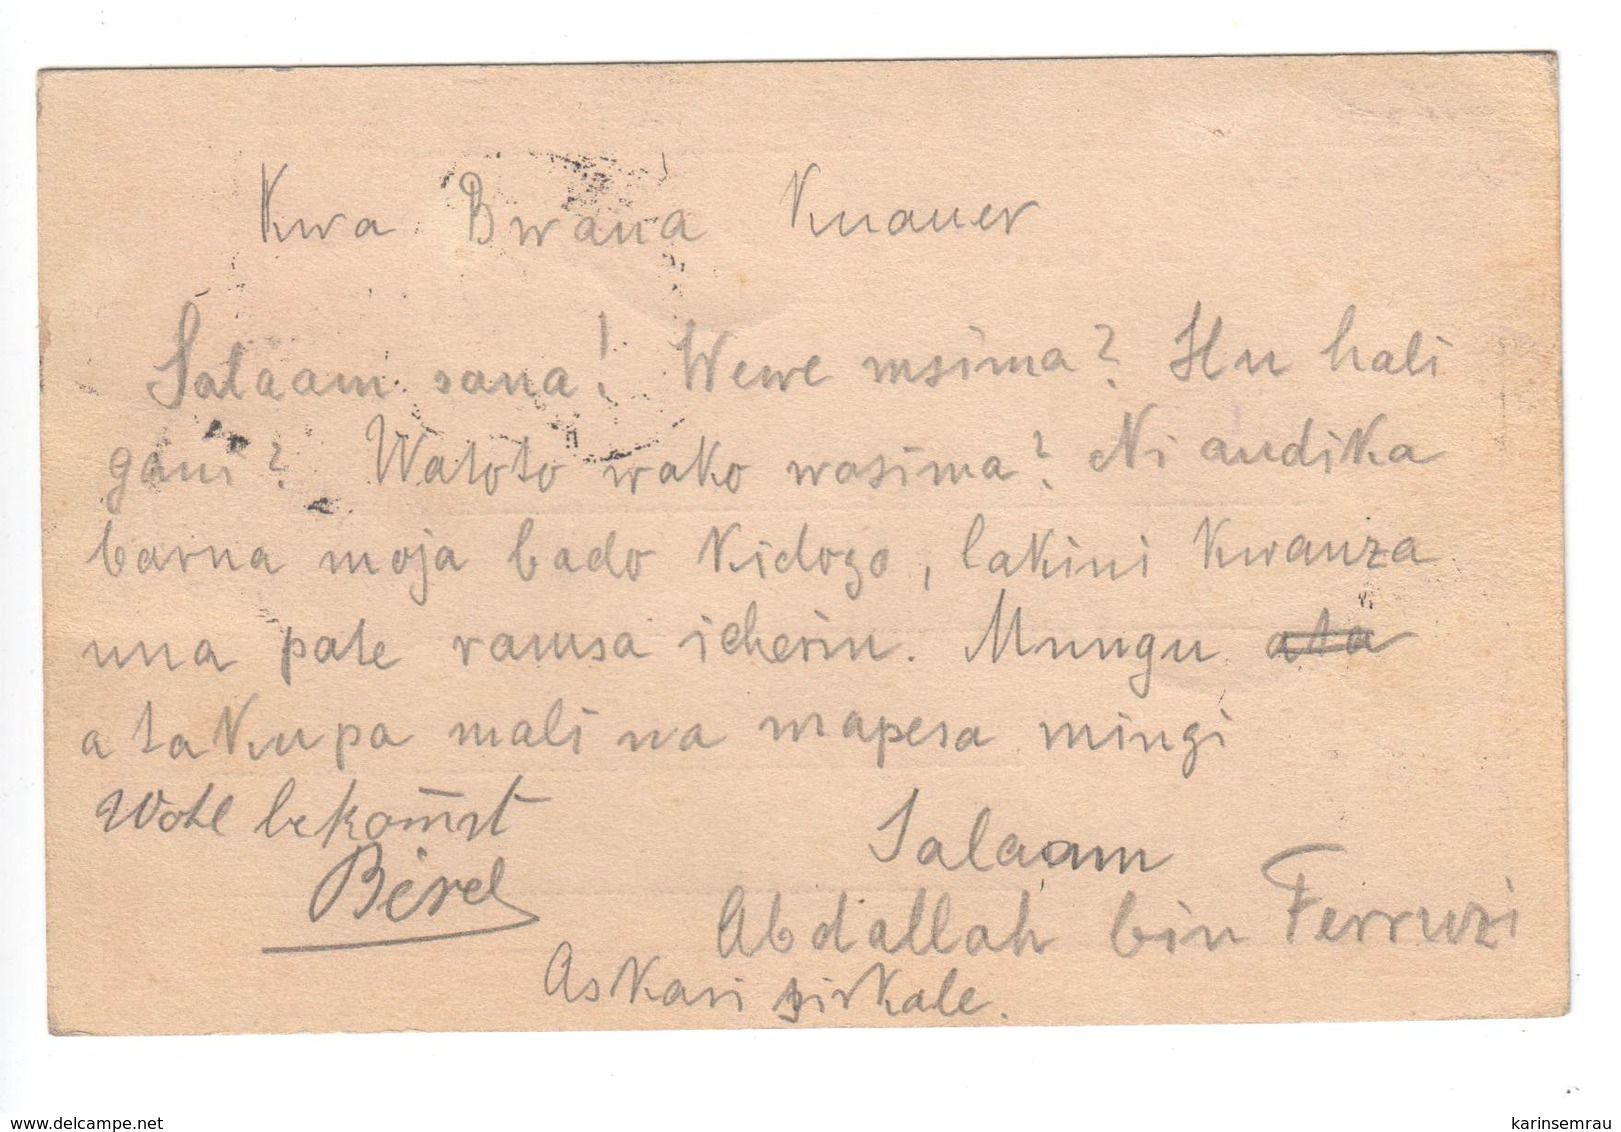 Kwa Bwana Knauer
Salaam sana! Wewe msima? Hu hali
gani? Watoto wako wasima? Ni andika
barua moja bado kidogo, lakini kwanza
una pate ramsa icherin. Mungu ata
a takupa mali na mapesa mingi
Wohl bekom̄st Salaam
Abdallah bin Ferruzi
Askari sirkale.
delcampe.net
karinsemrau